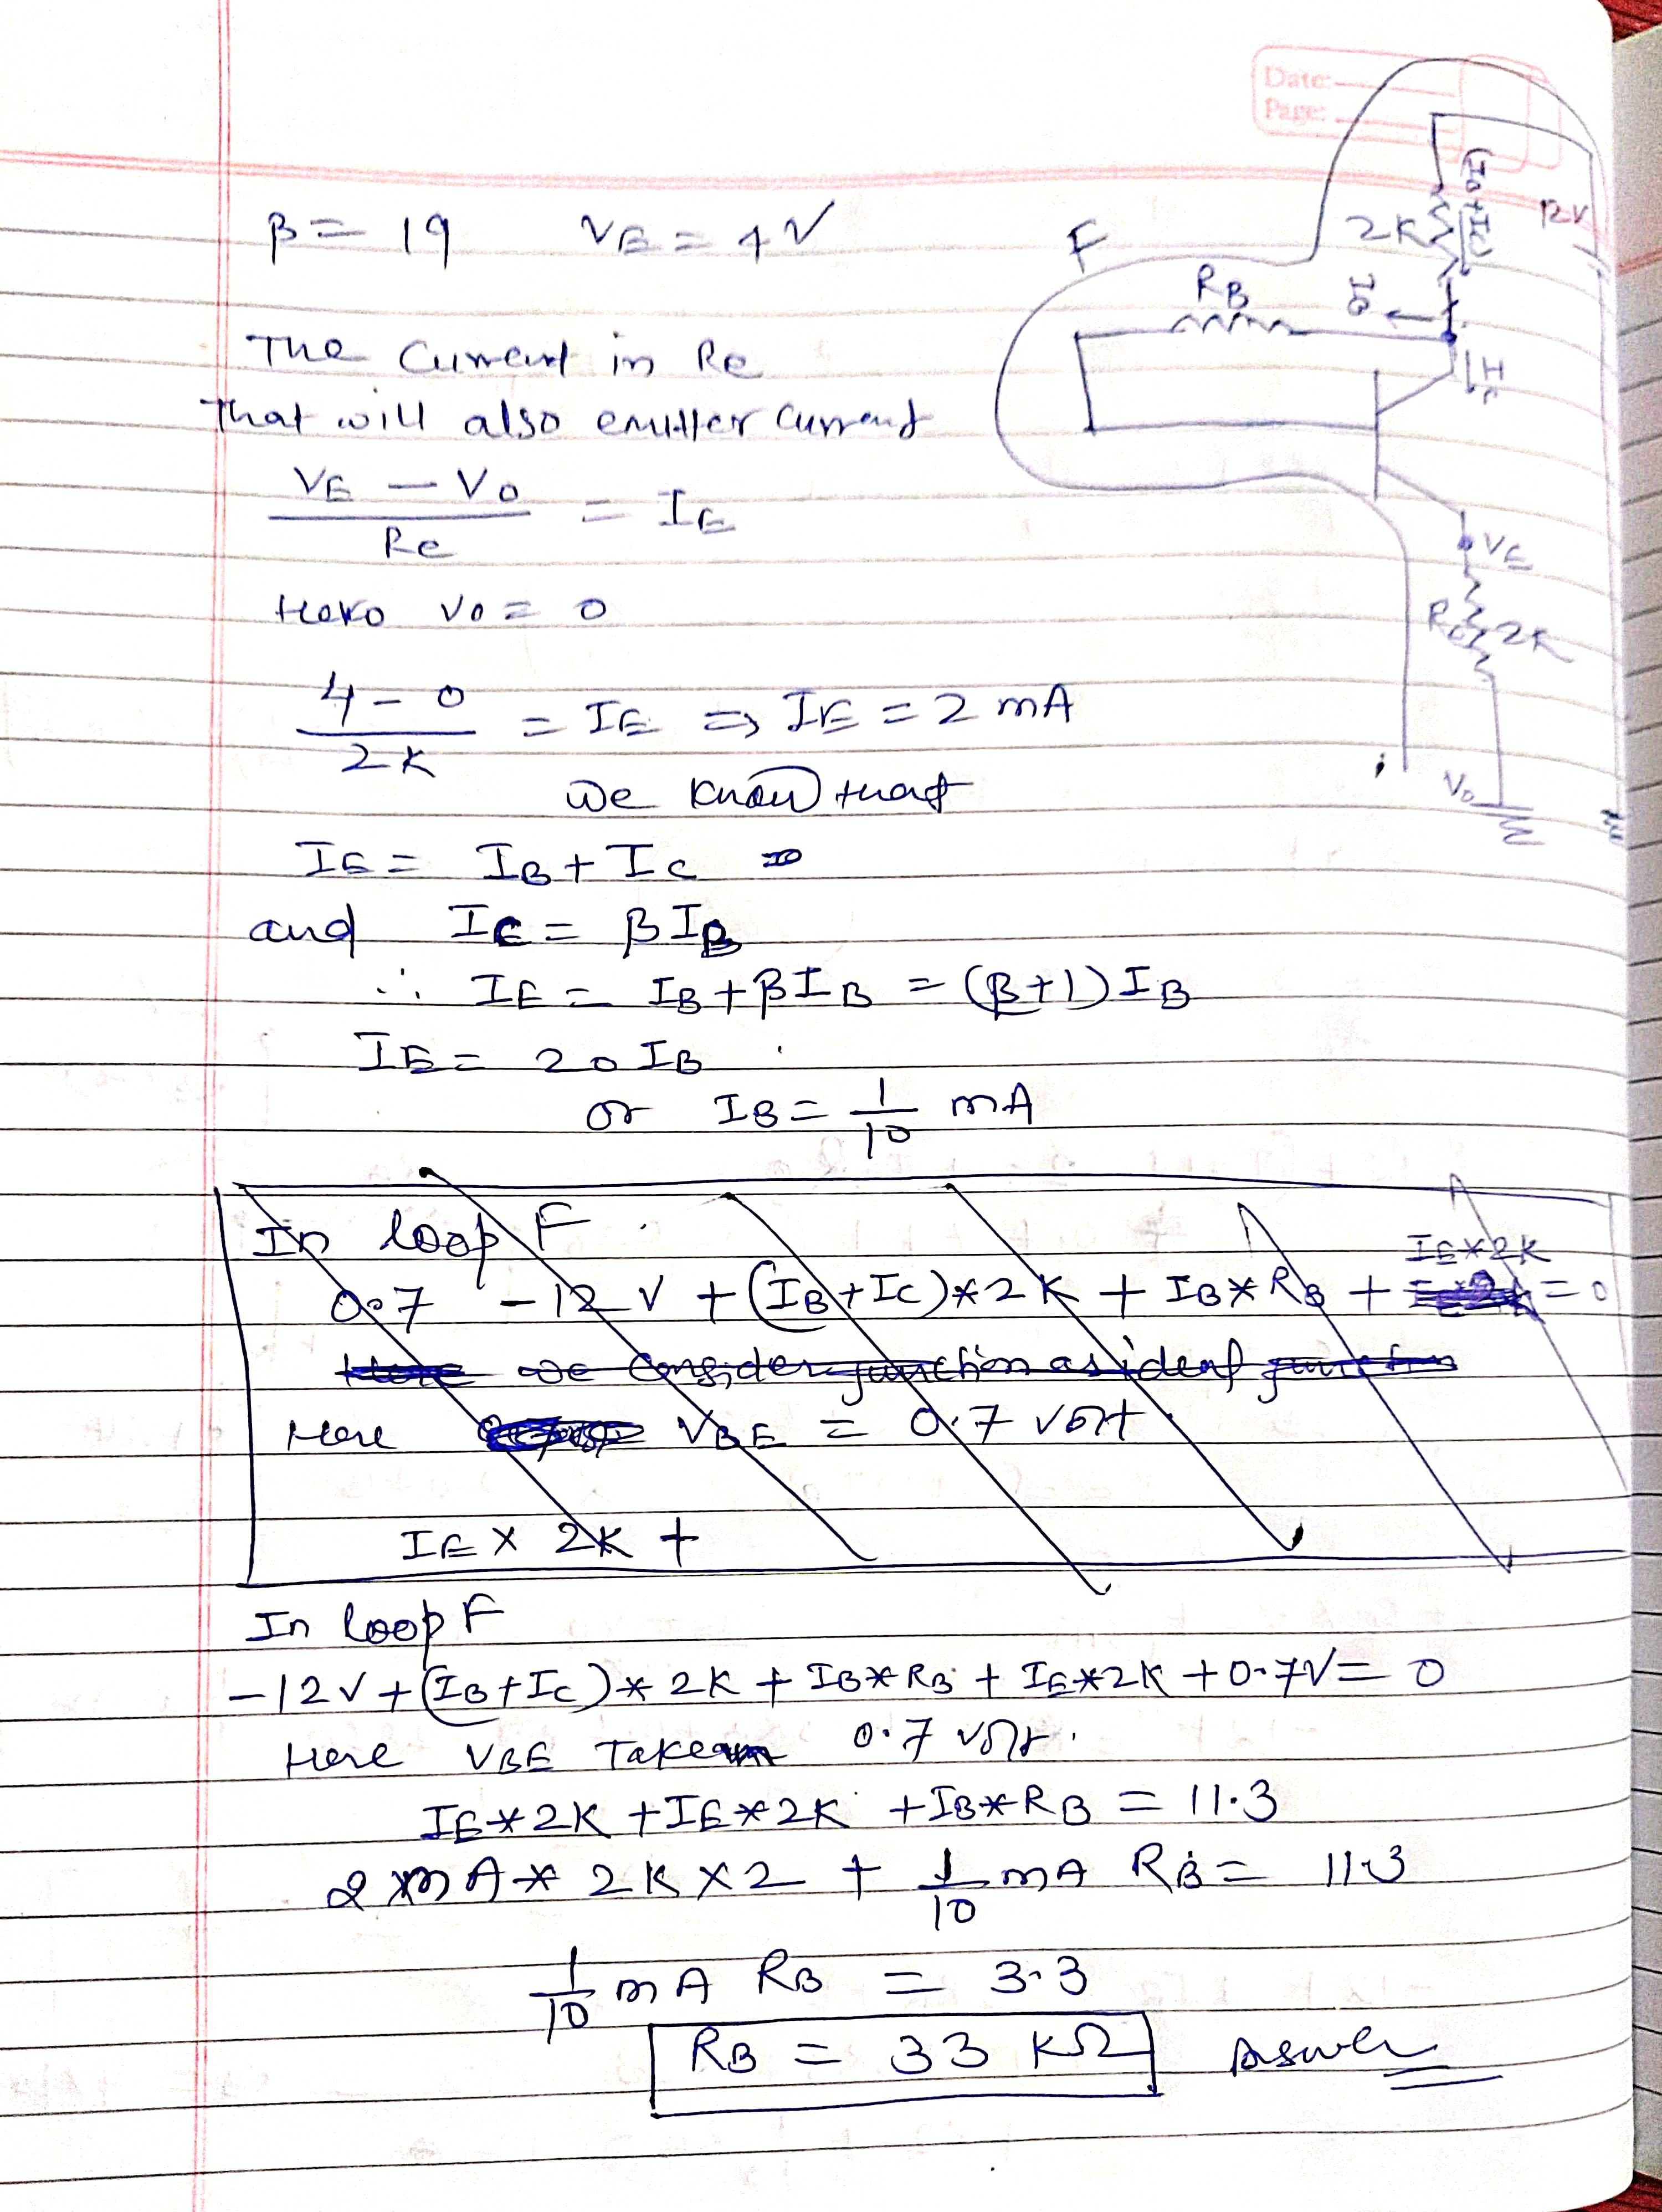 Date:
Page:
β = 19 VE = 4V
F
RB
2K
IB+IC
12V
IB
IC
The Current in Re
That will also emitter current
VE - Vo / Re = IE
VE
Re 2K
Vo
Here Vo = 0
4 - 0 / 2K = IE ⇒ IE = 2 mA
we know that
IE = IB + IC
and IC = βIB
∴ IE = IB + βIB = (β+1) IB
IE = 20 IB
or IB = 1/10 mA
In loop F
IE*2K
0.7 - 12 V + (IB+IC)*2K + IB*RB + = 0
Here we consider junction as ideal junction
Here VBE = 0.7 volt
IE X 2K +
In loop F
-12V + (IB+IC)*2K + IB*RB + IE*2K + 0.7V = 0
Here VBE Taken 0.7 volt.
IE*2K + IE*2K + IB*RB = 11.3
2 mA * 2K X 2 + 1/10 mA RB = 11.3
1/10 mA RB = 3.3
RB = 33 KΩ Answer